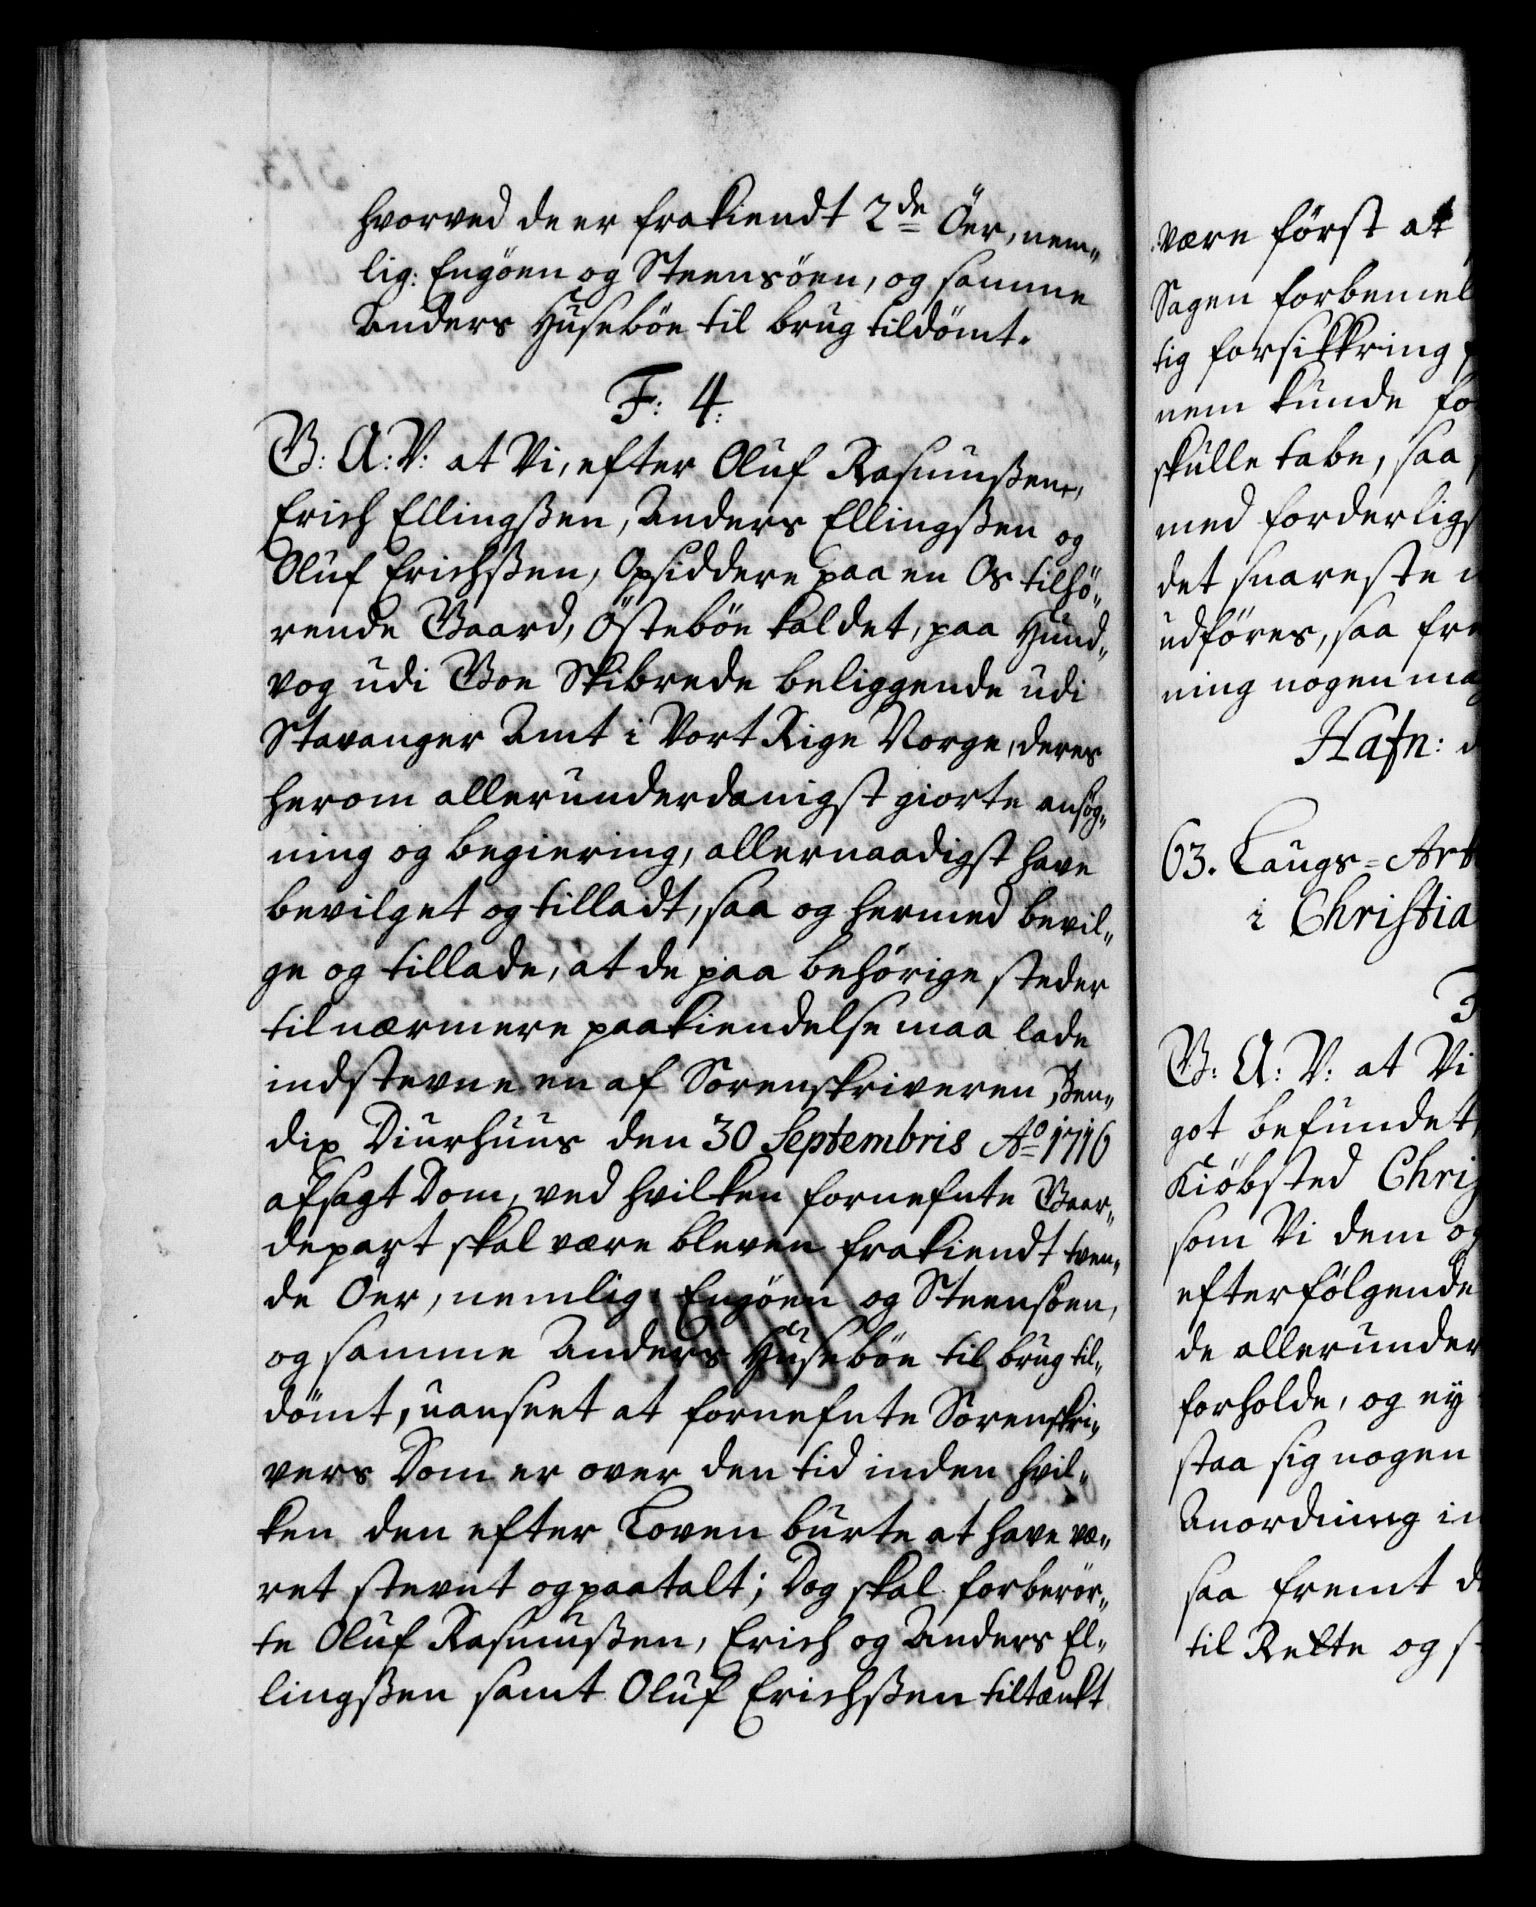 hvorved de er frakiendt 2de Öer, nem-
lig: Engöen og Steensöen, og samme
Anders Husebön til brug tildömt.
F: 4.
G: A: V: at Vi, efter Oluf Rasmussen,
Erich Ellingssen, Anders Ellingssen og
Oluf Erichssen, Opsiddere paa en Os tilhö-
rende Gaard, Östebön kaldet, paa Hund-
vog udi Goe Skibrede beliggende udi
Stavanger Amt i Vort Rige Norge, deres
herom allerunderdanigst giorte ansøg-
ning og begiering, allernaadigst have
bevilget og tilladt, saa og hermed bevil-
ge og tillade, at de paa behörige steder
til nærmere paakiendelse maa lade
indstevne en af Sorenskriveren Ben-
dix Diurhuus den 30 Septembris Ao 1716
afsagt Dom, ved hvilken fornefnte Gaar-
depart skal være bleven frakiendt tven-
de Öer, nemlig: Engöen og Steensöen,
og samme Anders Husebön til brug til-
dömt, uanseet at fornefnte Sorenskri-
vers Dom er over den tid inden hvil-
ken den efter Loven burte at have væ-
ret stevnt og paatalt; Dog skal forberör-
te Oluf Rasmussen, Erich og Anders El-
lingssen samt Oluf Erichssen tiltænkt
være först at
Sagen forbemel
tig forsikkring
nem kunde fo
skulle tabe, saa
med forderligs
det snareste
udföres, saa fre
ning nogen ma
Hafn:
63. Laugs-Art
i Christia
G: A: V: at Vi
got befundet
Kiöbsted Chris
som Vi dem og
efterfölgende
de allerunder
forholde, og ey
staa sig nogen
Anordning in
saa fremt d
til Rette og s